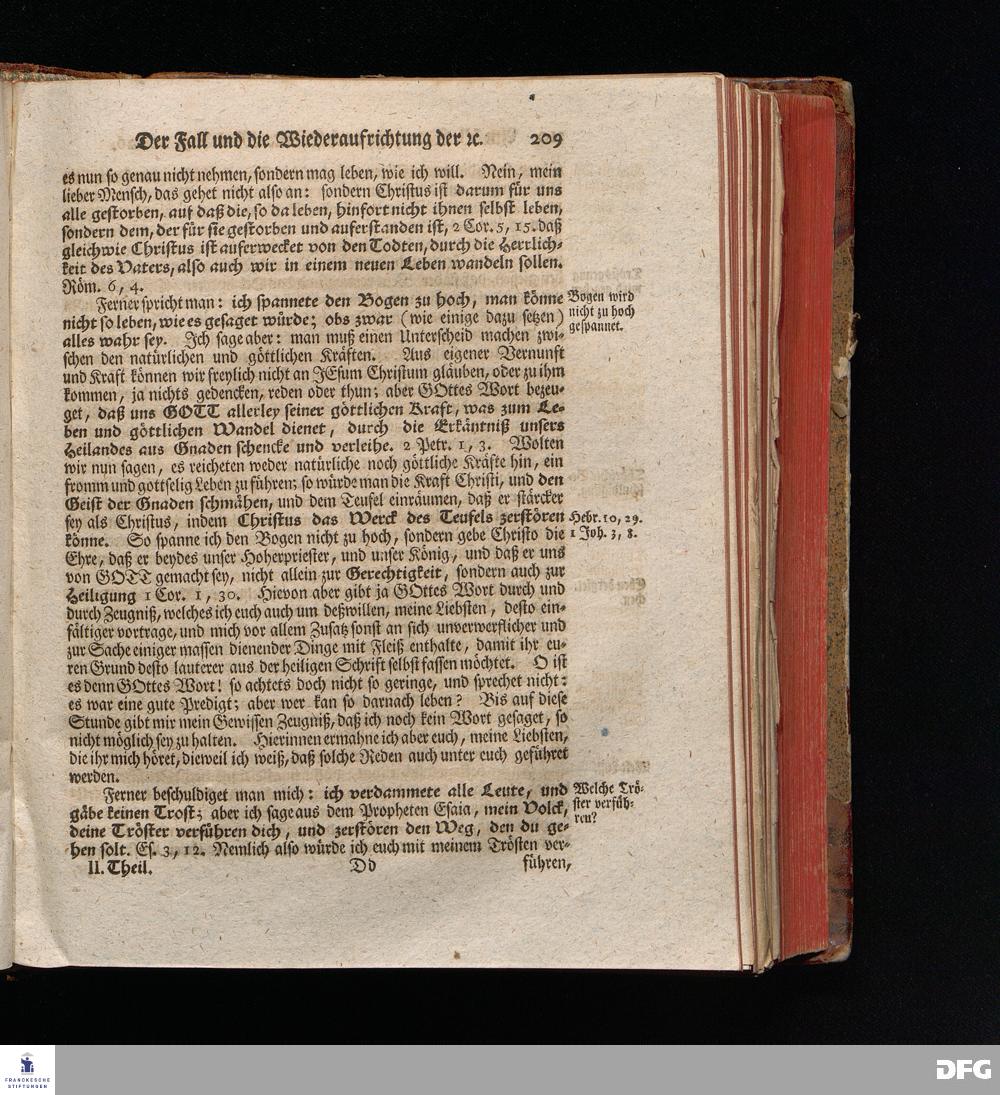 Der Fall und die Wiederaufrichtung der ꝛc. 209
es nun so genau nicht nehmen, sondern mag leben, wie ich will. Nein, mein
lieber Mensch, das gehet nicht also an: sondern Christus ist darum für uns
alle gestorben, auf daß die, so da leben, hinfort nicht ihnen selbst leben,
sondern dem, der für sie gestorben und auferstanden ist, 2 Cor. 5, 15. daß
gleichwie Christus ist auferwecket von den Todten, durch die Herrlich-
keit des Vaters, also auch wir in einem neuen Leben wandeln sollen.
Röm. 6, 4.
Ferner spricht man: ich spannete den Bogen zu hoch, man könne
nicht so leben, wie es gesaget würde; obs zwar (wie einige dazu setzen)
alles wahr sey. Ich sage aber: man muß einen Unterscheid machen zwi-
schen den natürlichen und göttlichen Kräften. Aus eigener Vernunft
und Kraft können wir freylich nicht an JEsum Christum gläuben, oder zu ihm
kommen, ja nichts gedencken, reden oder thun; aber GOttes Wort bezeu-
get, daß uns GOTT allerley seiner göttlichen Kraft, was zum Le-
ben und göttlichen Wandel dienet, durch die Erkäntniß unsers
Heilandes aus Gnaden schencke und verleihe. 2 Petr. 1, 3. Wolten
wir nun sagen, es reicheten weder natürliche noch göttliche Kräfte hin, ein
fromm und gottselig Leben zu führen; so würde man die Kraft Christi, und den
Geist der Gnaden schmähen, und dem Teufel einräumen, daß er stärcker
sey als Christus, indem Christus das Werck des Teufels zerstören
könne. So spanne ich den Bogen nicht zu hoch, sondern gebe Christo die
Ehre, daß er beydes unser Hoherpriester, und unser König, und daß er uns
von GOTT gemacht sey, nicht allein zur Gerechtigkeit, sondern auch zur
Heiligung 1 Cor. 1, 30. Hievon aber gibt ja GOttes Wort durch und
durch Zeugniß, welches ich euch auch um deßwillen, meine Liebsten, desto ein-
fältiger vortrage, und mich vor allem Zusatz sonst an sich unverwerflicher und
zur Sache einiger massen dienender Dinge mit Fleiß enthalte, damit ihr eu-
ren Grund desto lauterer aus der heiligen Schrift selbst fassen möchtet. O ist
es denn GOttes Wort! so achtets doch nicht so geringe, und sprechet nicht:
es war eine gute Predigt; aber wer kan so darnach leben? Bis auf diese
Stunde gibt mir mein Gewissen Zeugniß, daß ich noch kein Wort gesaget, so
nicht möglich sey zu halten. Hierinnen ermahne ich aber euch, meine Liebsten,
die ihr mich höret, dieweil ich weiß, daß solche Reden auch unter euch geführet
werden.
Ferner beschuldiget man mich: ich verdammete alle Leute, und
gäbe keinen Trost; aber ich sage aus dem Propheten Esaia, mein Volck,
deine Tröster verführen dich, und zerstören den Weg, den du ge-
hen solt. Es. 3, 12. Nemlich also würde ich euch mit meinem Trösten ver-
II. Theil. Dd führen,
Bogen wird
nicht zu hoch
gespannet.
Hebr. 10, 29.
1 Joh. 3, 8.
Welche Trö-
ster verfüh-
ren?
FRANCKESCHE
STIFTUNGEN
DFG